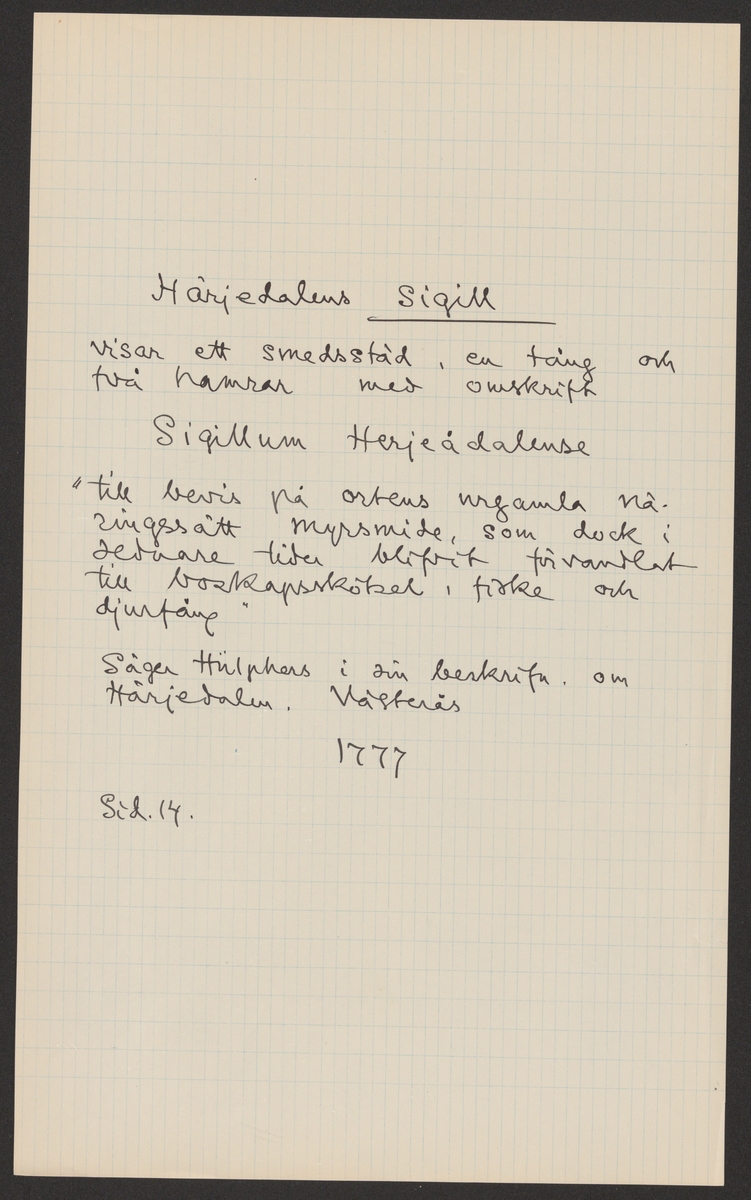 Härjedalens Sigill
visar ett smedsstäd, en tång och
två hamrar med omskrift
Sigillum Herjeådalense
"till bevis på ortens urgamla nä-
ringssätt myrsmide, som dock i
sednare tider blifvit förvandlat
till boskapsskötsel, fiske och
djurfång"
Säger Hülphers i sin beskrifn. om
Härjedalen. Västerås
1777
Sid. 14.